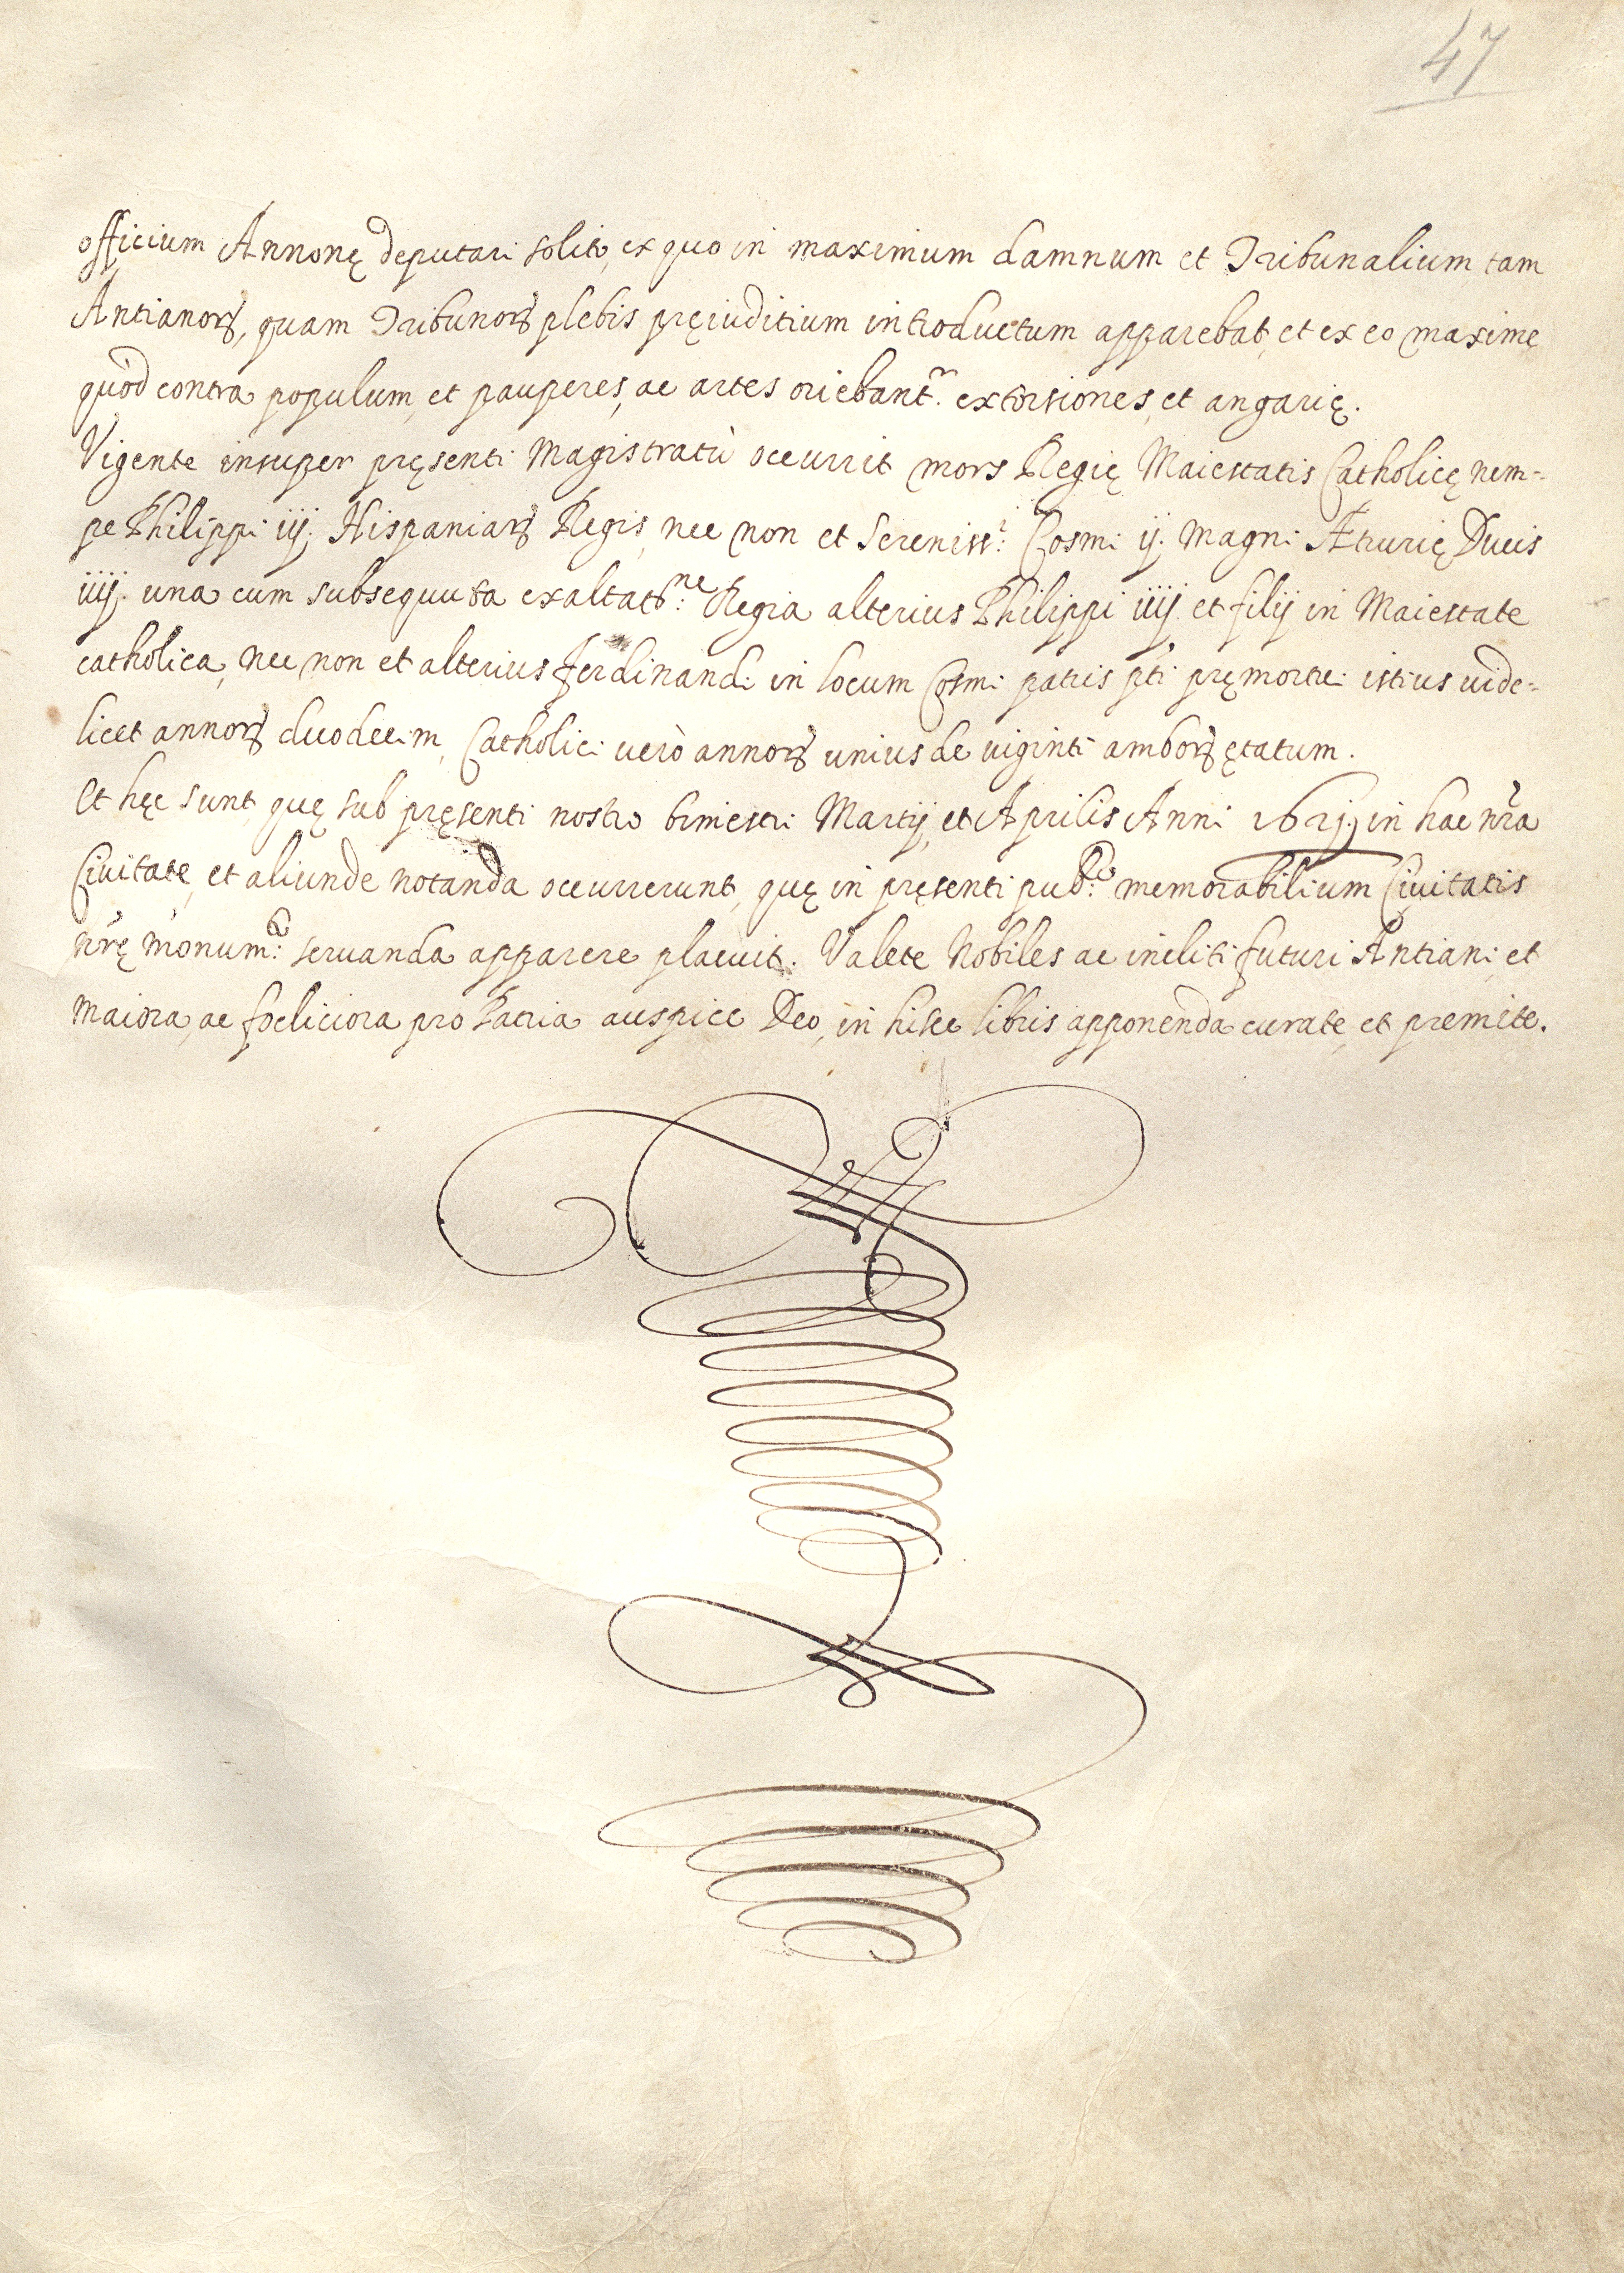 47
officium Annonę deputari solito, ex quo in maximum damnum et Tribunalium, tam
Antianorꝝ, quam Tribunorꝝ plebis pręiuditium introductum apparebat, et ex eo maximę
quòd contra populum, et pauperes, ac artes oriebantr. extorsiones, et angarię.
Vigente insuper pręsenti Magistratù occurrit mors Regię Maiestatis Catholicę nem=
pe Philippi iij. Hispaniarꝝ Regis, nec non et Sereniss.i Cosmi ij. Magni Ætrurię Ducis
iiij. una cum subsequuta exaltatne: Regia alterius Philippi iiij. et filij in Maiestate
catholica, nec non et alterius Ferdinandi in locum Cosmi patris pti pręmortui istius uide=
licet annorꝝ duodecim, Catholici uerò annorꝝ unius de uiginti amborꝝ ętatum.
Et hęc sunt, quę sub pręsenti nostro bimestri Martij, et Aprilis Anni 1621. in hac nr̃a
Ciuitate, et aliunde notanda occurrerunt, quę in pręsenti pubco: memorabilium Ciuitatis
nr̃ę monum.ta: seruanda apparere placuit. Valete Nobiles ac incliti futuri Antiani, et
maiora, ac foeliciora pro Patria auspice Deo, in hisce libris apponenda curate, et premite.